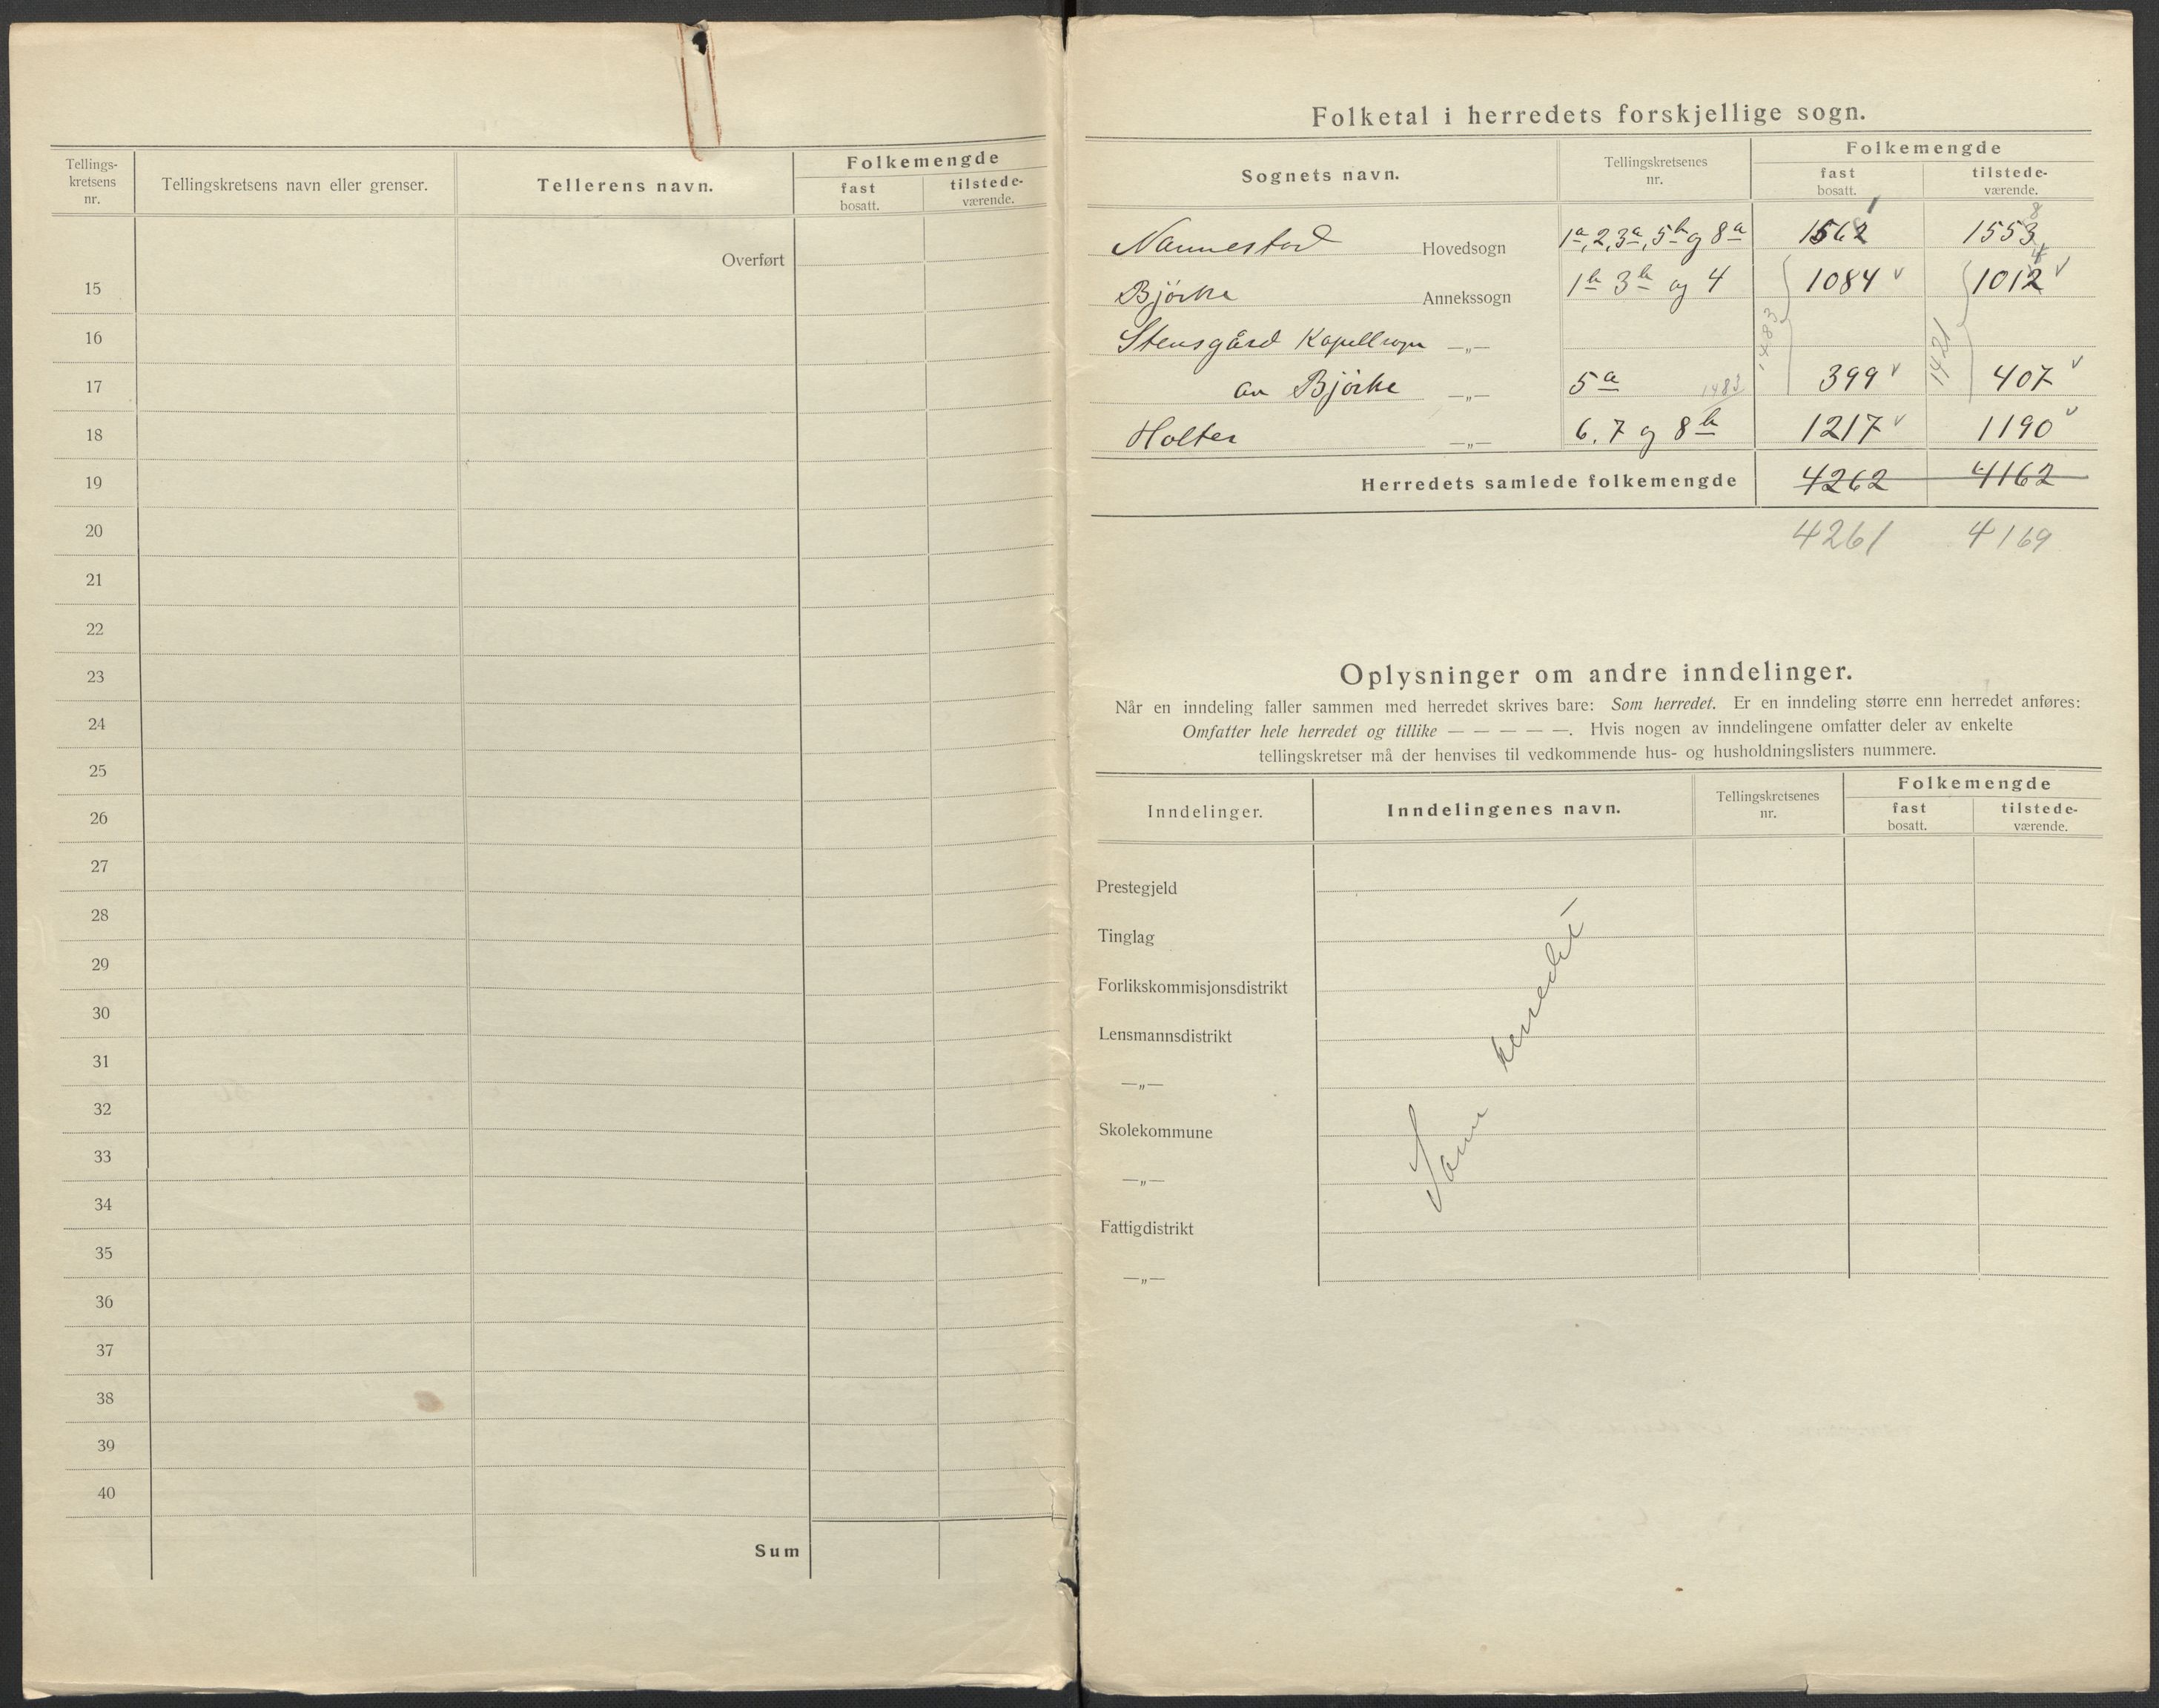 Tellings-
kretsens
nr.
Tellingskretsens navn eller grenser.
Tellerens navn.
Folkemengde
fast
bosatt.
tilstede-
værende.
Overført
15
16
17
18
19
20
21
22
23
24
25
26
27
28
29
30
31
32
33
34
35
36
37
38
39
40
Sum
Folketal i herredets forskjellige sogn.
Sognets navn.
Tellingskretsenes
nr.
Folkemengde
fast
bosatt.
tilstede-
værende.
1 8
Nannestad Hovedsogn 1a, 2, 3a, 5b og 8a 1562 1553
4
Björke Annekssogn 1b 3b og 4 1084 v 1012 v
Stensgård Kapellsogn —„—
1483 1421
av Björke —„— 5a 1483 399 v 407 v
Holter —„— 6, 7 og 8b 1217 v 1190 v
Herredets samlede folkemengde 4262 4162
4261 4169
Oplysninger om andre inndelinger.
Når en inndeling faller sammen med herredet skrives bare: Som herredet. Er en inndeling større enn herredet anføres:
Omfatter hele herredet og tillike — — — — —. Hvis nogen av inndelingene omfatter deler av enkelte
tellingskretser må der henvises til vedkommende hus- og husholdningslisters nummere.
Inndelinger.
Inndelingenes navn.
Tellingskretsenes
nr.
Folkemengde
fast
bosatt.
tilstede-
værende.
Prestegjeld
Tinglag
Forlikskommisjonsdistrikt
Lensmannsdistrikt
—„—
Skolekommune
—„—
Fattigdistrikt
—„—
Som herredet